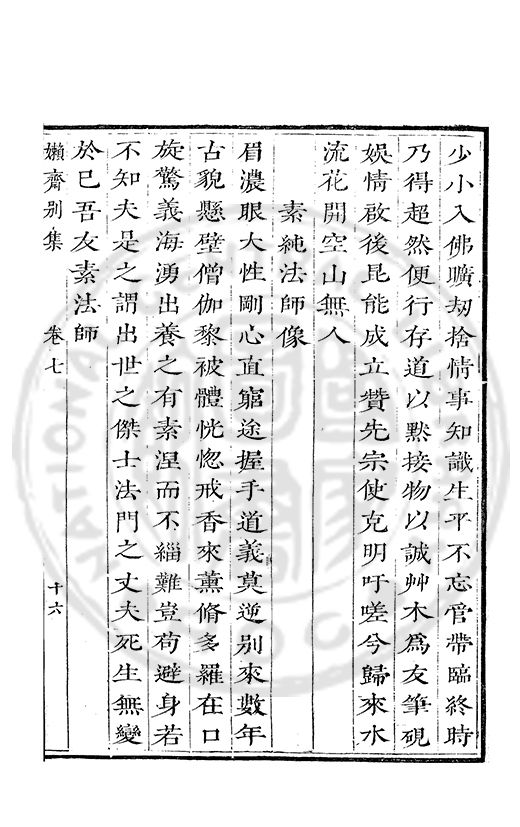 少小入佛曠劫捨情事知識生平不忘官帶臨終時
乃得超然便行存道以默接物以誠艸木爲友筆硯
娛情啟後昆能成立贊先宗使克明吁嗟兮歸來水
流花開空山無人
素純法師像
眉濃眼大性剛心直窮途握手道義莫逆別來數年
古貌懸壁僧伽黎被體恍惚戒香來薰脩多羅在口
旋驚義海湧出養之有素涅而不緇難豈苟避身若
不知夫是之謂出世之傑士法門之丈夫死生無變
於已吾友素法師
嬾齋別集 卷七 十六